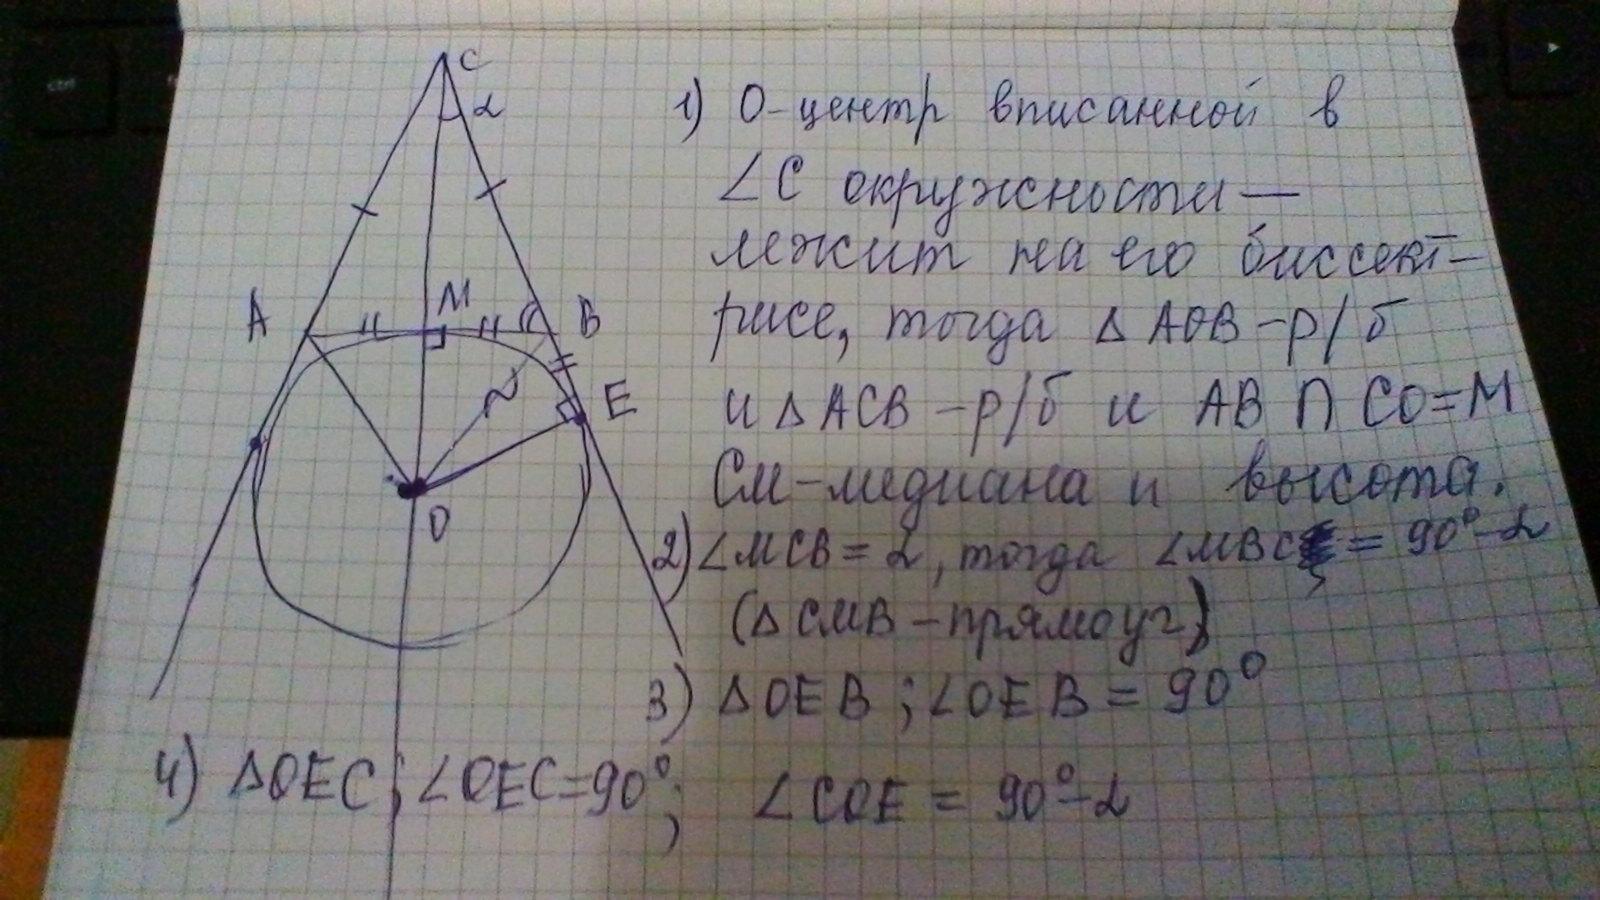 ctrl
C
α
1) О-центр вписанной в
∠C окружности —
лежит на его биссект-
A
M
B
рисе, тогда △AOB - р/б
E
и △ACB - р/б и AB ∩ CO=M
CM-медиана и высота.
O
2) ∠MCB = α, тогда ∠MBC = 90°-α
(△CMB - прямоуг)
3) △OEB ; ∠OEB = 90°
4) △OEC ; ∠OEC=90° ; ∠COE = 90°-α